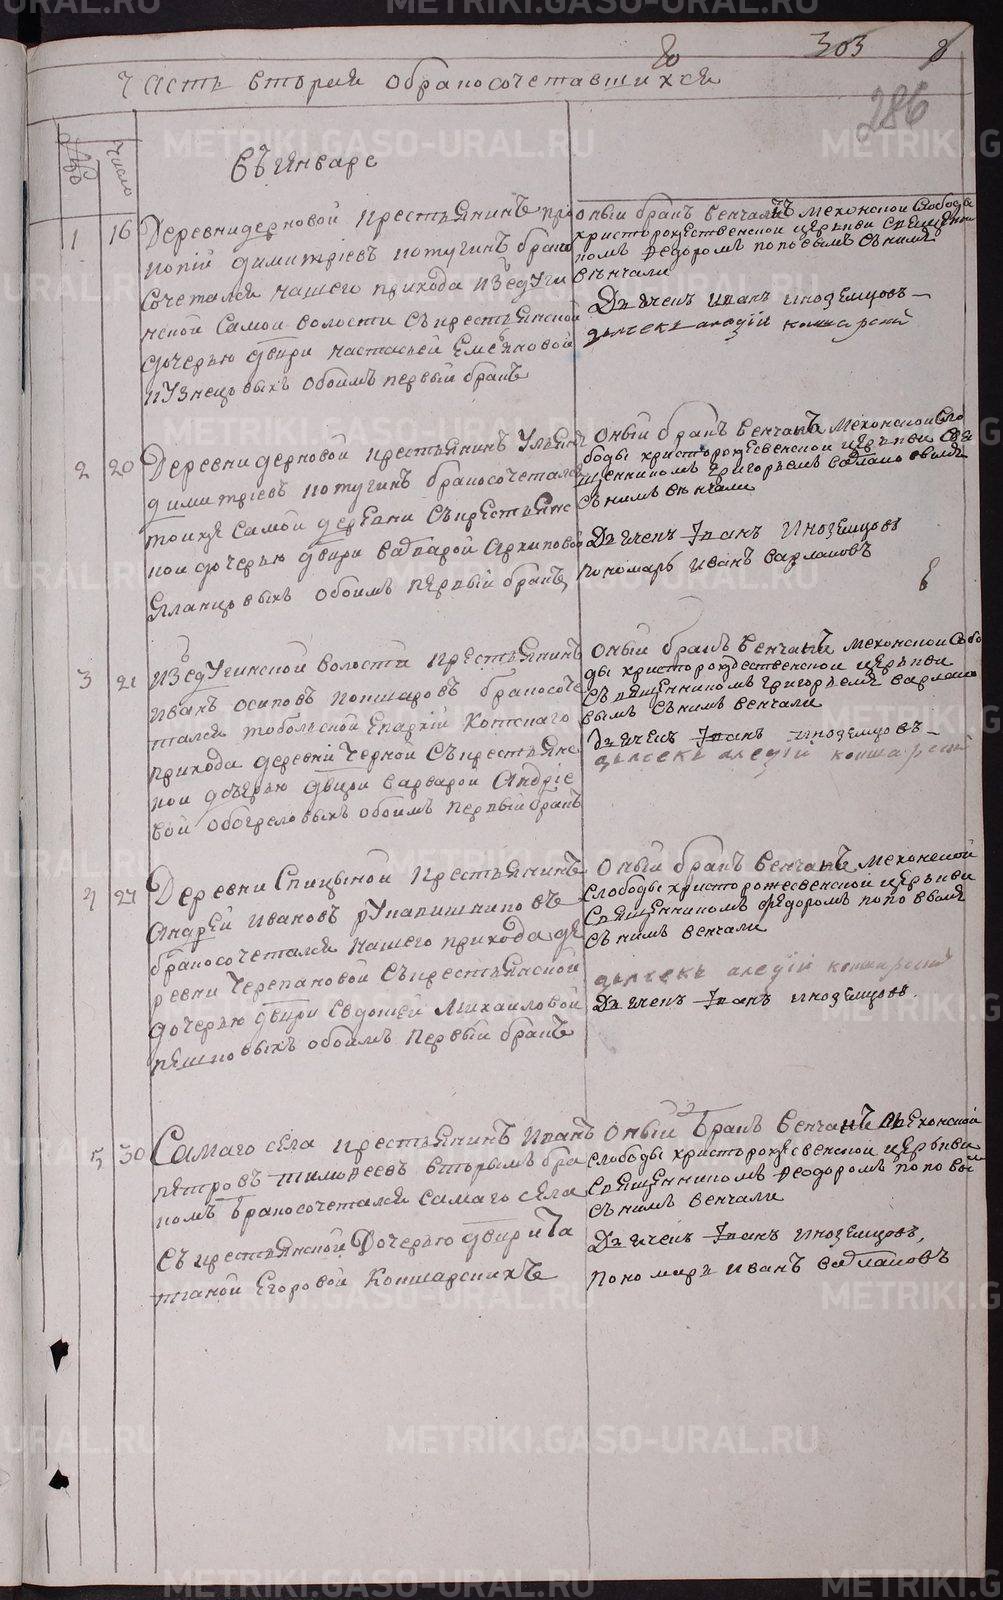 303
286
Часть вторая обракосочетавшихся
число
Въ январе
1 16 Деревни дерновой крестьянинъ про
копiй димитрiевъ потугинъ брако
сочетался нашего прихода изъ едуги
нской самой волости съ крестьянской
дочерью двири настасьей Емеяновой
кузнецовыхъ обоимъ первый бракъ
оный бракъ венчанъ мехонской слободы
христорождественской церкви священни
комъ Федоромъ поповымъ съ нимъ
венчали
Дьячекъ Иванъ иноземцовъ
дьячекъ аледiй кокшарскiй
2 20 Деревни дерновой крестьянинъ Ульянъ
димитрiевъ потугинъ бракосочетался
тоижъ самой деревни съ крестьянс
кой дочерью двири варварой Архиповой
Япанцовыхъ обоимъ первый бракъ
Оный бракъ венчанъ мехонской сло
боды христорождесвенской церькви свя
щенникомъ григорьемъ варлаковымъ
съ нимъ венчали
Дьячекъ Iванъ Иноземцовъ
пономарь иванъ варлаковъ
3 21 изъ едугинской волости крестьянинъ
иванъ осиповъ кокшаровъ бракосоче
тался тобольской Епархiй Котскаго
прихода деревни Черной съ крестьянс
кой дочерью двири варварой Андрiе
вой обогреловыхъ обоимъ первый бракъ
Оный бракъ венчанъ мехонской слобо
ды христорождественской церькви
священникомъ григорьемъ варлако
вымъ съ нимъ венчали
дьячекъ Iванъ иноземцовъ
дьячекъ аледiй кокшарскiй
4 27 Деревни Спицыной крестьянинъ
Андрей ивановъ рукавишниковъ
бракосочетался нашего прихода де
ревни Черепановой съ крестьянской
дочерью двири Евдокией Михаиловой
пешковыхъ обоимъ первый бракъ
Оный бракъ венчанъ мехонской
слободы христорожесвенской церькви
священникомъ федоромъ поповымъ
съ нимъ венчали
дьячекъ аледiй кокшарскiй
Дьячекъ Iванъ иноземцовъ
5 30 Самаго села крестьянинъ Иванъ
петровъ тимофеевъ вторымъ бра
комъ бракосочетался самаго села
съ крестьянской Дочерью двири Та
тианой Егоровой Кокшарскихъ
Оный Бракъ венчанъ мехонской
слободы христорождесвенской церькви
священникомъ Феодоромъ поповы
съ нимъ венчали
Дьячекъ Iванъ иноземцовъ,
пономарь иванъ варлаковъ
METRIKI.GASO-URAL.RU